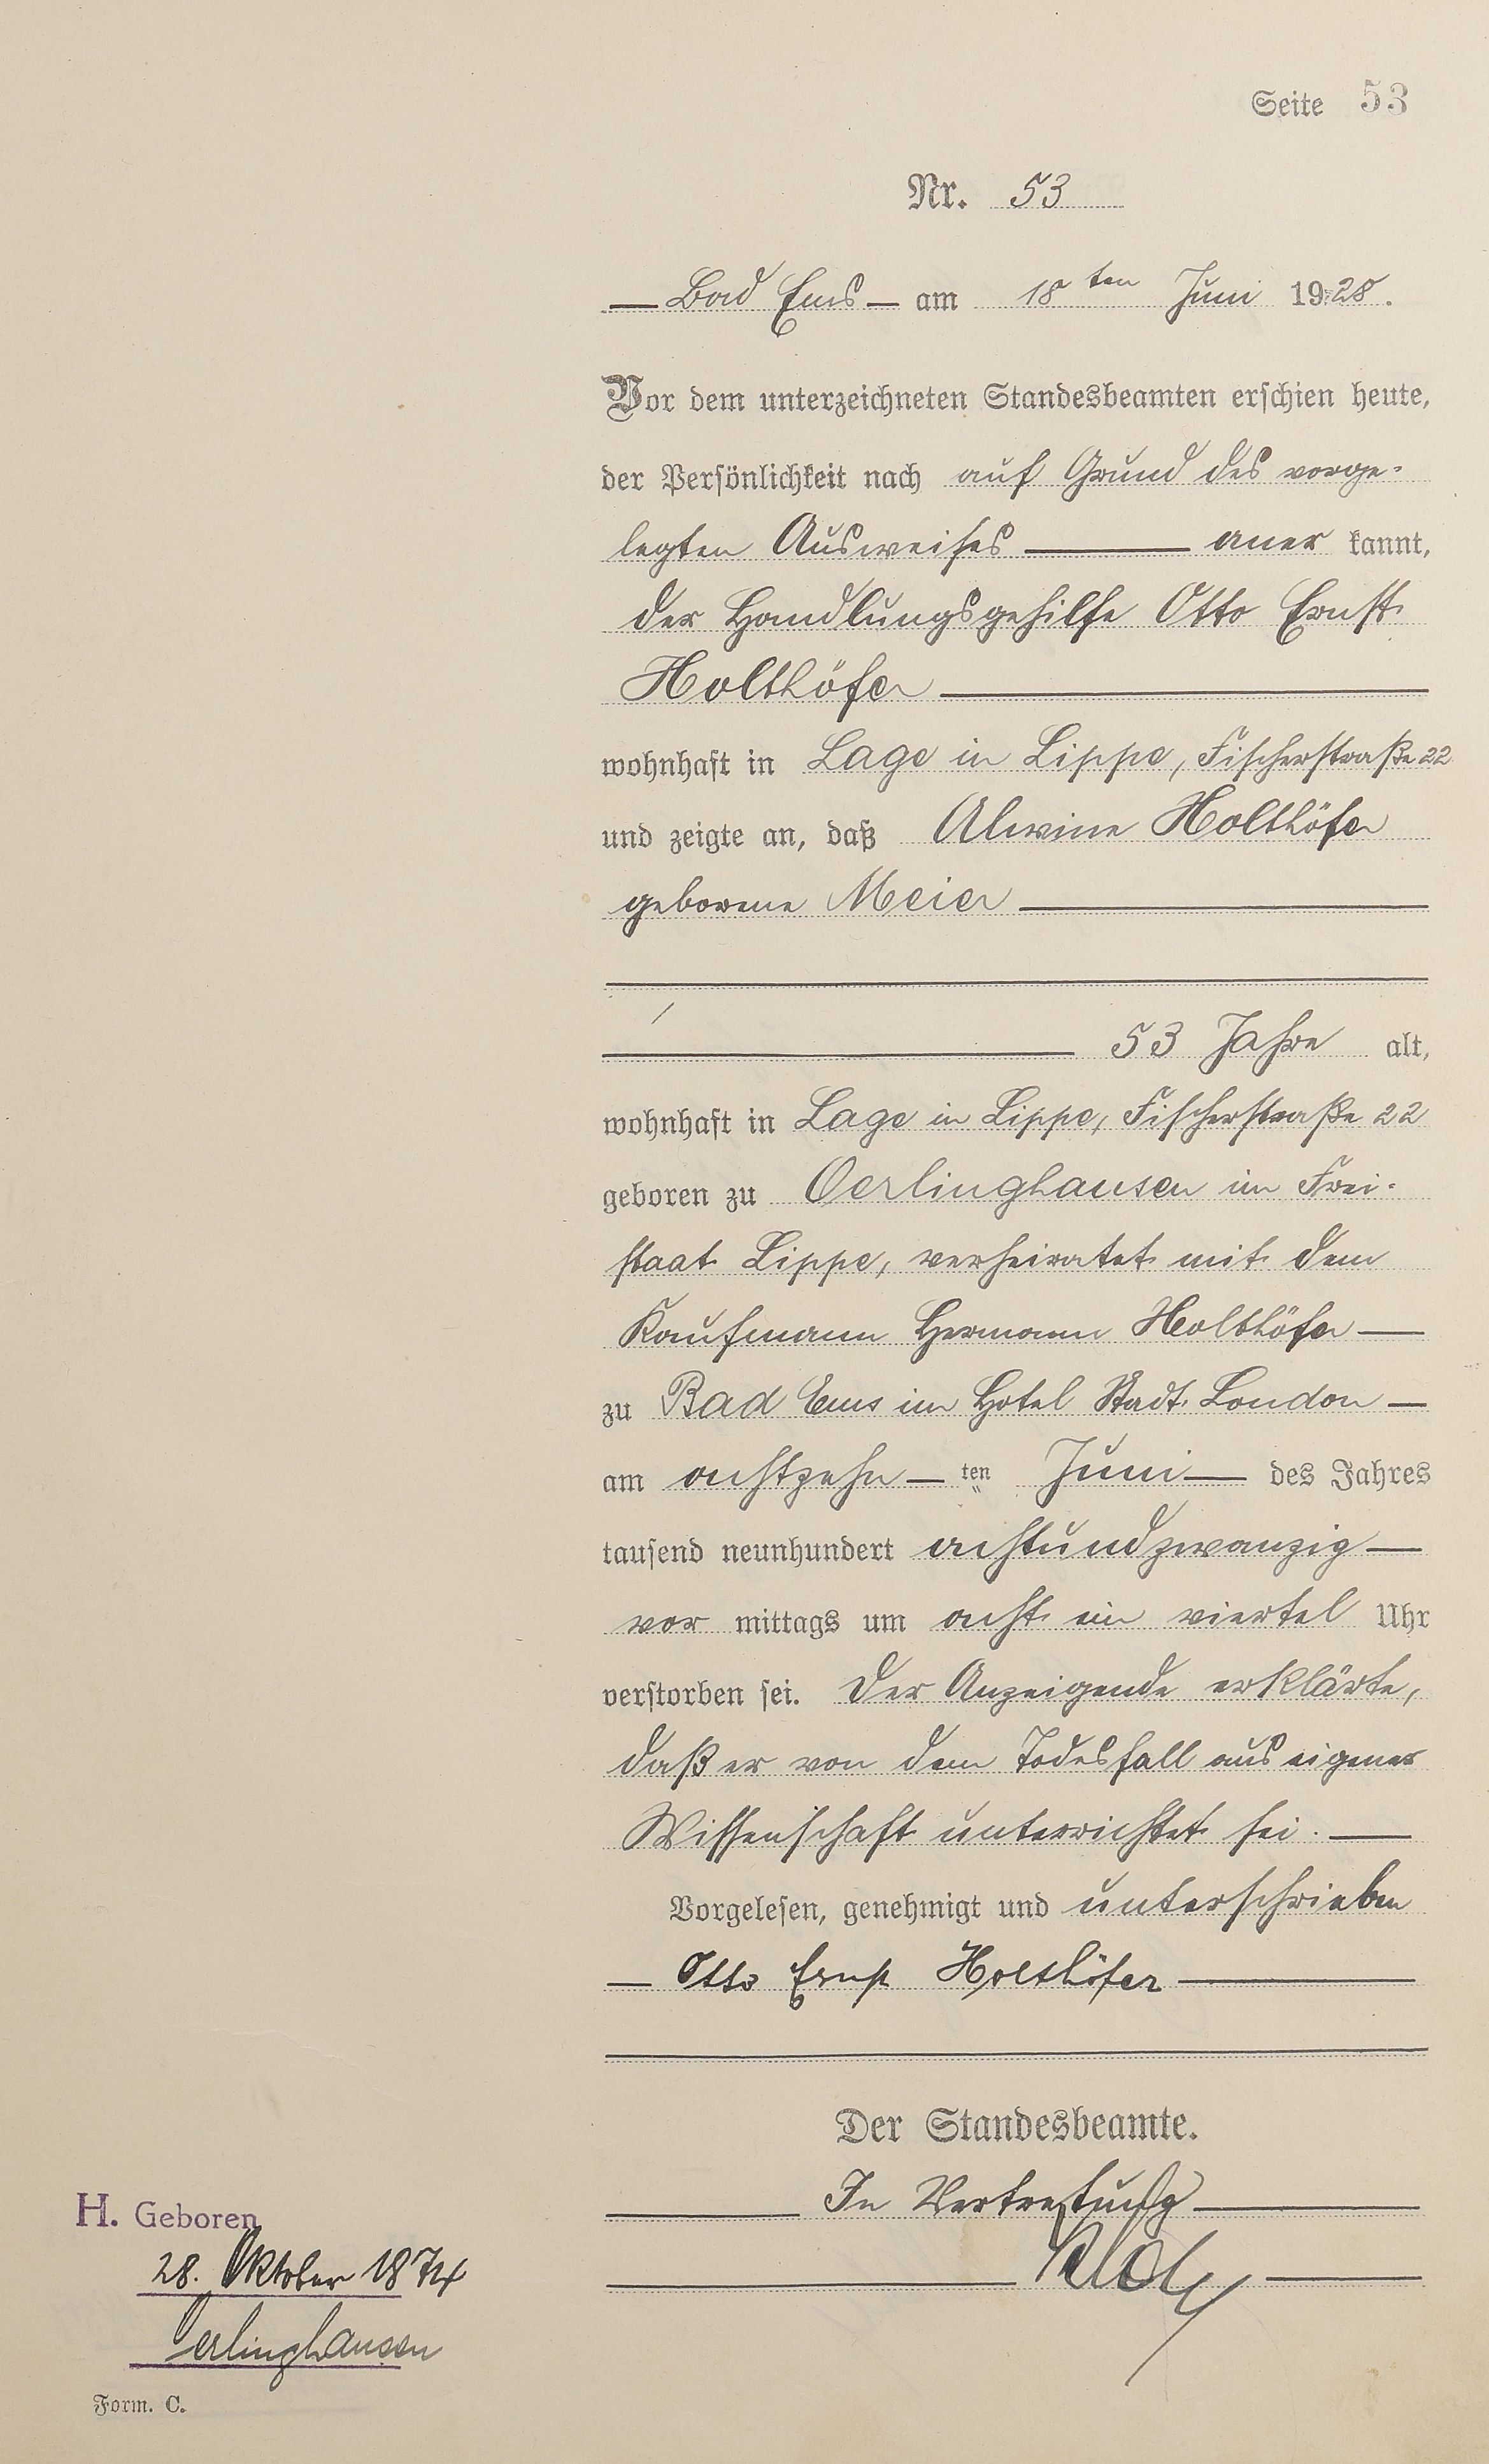 Seite 53
Nr. 53
Bad Ems am 18ten Juni 1928.
Vor dem unterzeichneten Standesbeamten erschien heute,
der Persönlichkeit nach auf Grund des vorge-
legten Ausweises aner kannt,
der Handlungsgehilfe Otto Ernst
Holthöfer
wohnhaft in Lage in Lippe, Fischerstraße 22
und zeigte an, daß Alwine Holthöfer
geborene Meier
53 Jahre alt,
wohnhaft in Lage in Lippe, Fischerstraße 22
geboren zu Oerlinghausen im Frei-
staat Lippe, verheiratet mit dem
Kaufmann Hermann Holthöfer
zu Bad Ems im Hotel Stadt London
am achtzehn ten Juni des Jahres
tausend neunhundert achtundzwanzig
vor mittags um acht ein viertel Uhr
verstorben sei. Der Anzeigende erklärte,
daß er von dem Todesfall aus eigener
Wissenschaft unterrichtet sei.
Vorgelesen, genehmigt und unterschrieben
Otto Ernst Holthöfer
Der Standesbeamte.
In Vertretung
H. Geboren
28. Oktober 1874
Oerlinghausen
Form. C.